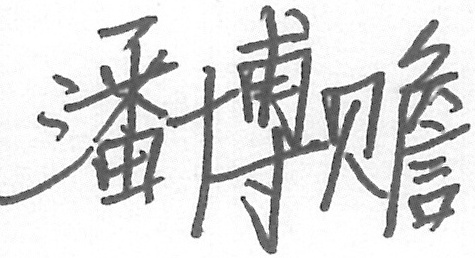 潘博赡